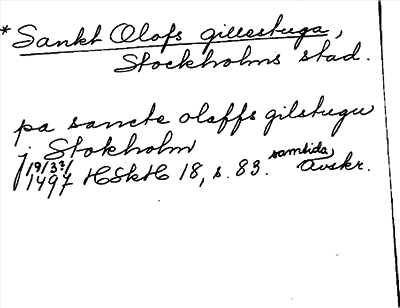 *Sankt Olofs gillestuga,
Stockholms stad.
pa sancte olaffs gilstugu
j Stokholm
1497 19/3 HSkH 18, s. 83. samtida Avskr.